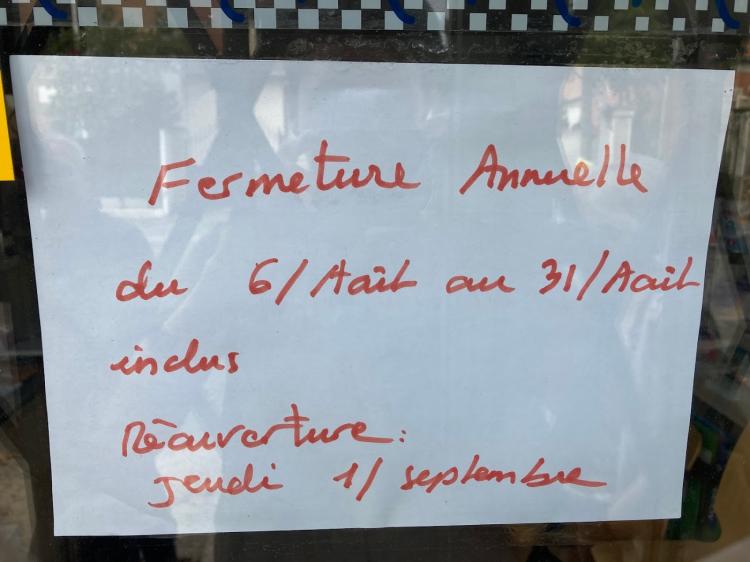 Fermeture Annuelle
du 6/Août au 31/Août
inclus
Réouverture:
jeudi 1/ septembre